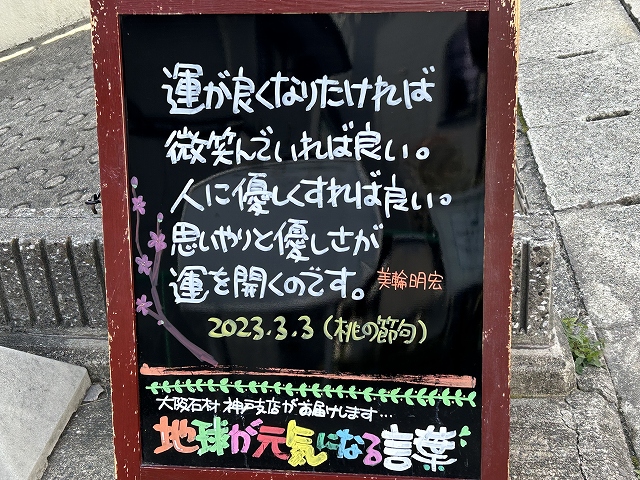 運が良くなりたければ
微笑んでいれば良い。
人に優しくすれば良い。
思いやりと優しさが
運を開くのです。 美輪明宏
2023.3.3 (桃の節句)
大阪石材 神戸支店がお届けします…
地球が元気になる言葉